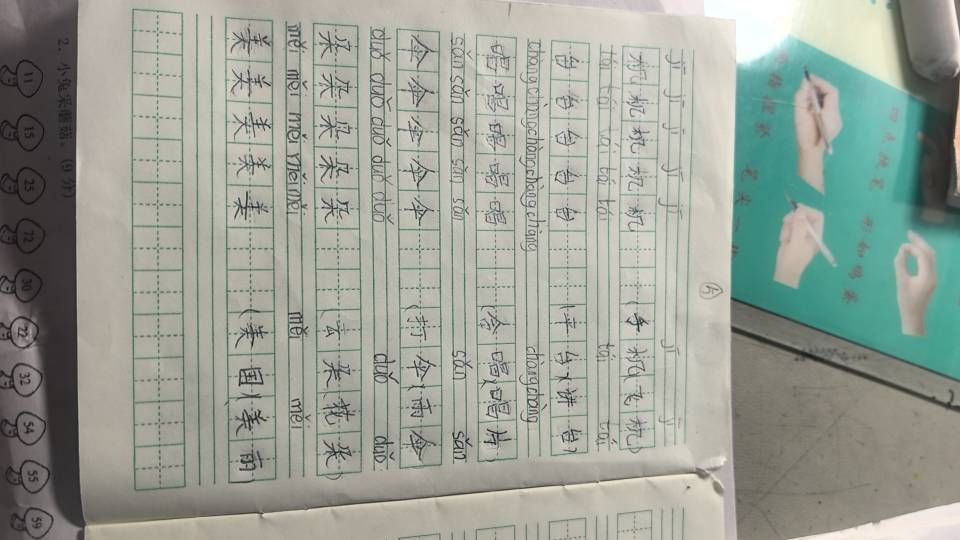 jī jī jī jī jī jī jī
机机机机机 (手机)(飞机)
tái tái tái tái tái tái tái
台台台台台 (平台)(讲台)
chàng chàng chàng chàng chàng chàng chàng
唱唱唱唱唱 (合唱)(唱片)
sǎn sǎn sǎn sǎn sǎn sǎn sǎn
伞伞伞伞伞 (打伞)(雨伞)
duǒ duǒ duǒ duǒ duǒ duǒ duǒ
朵朵朵朵朵 (云朵)(花朵)
měi měi měi měi měi měi měi
美美美美美 (美国)(美丽)
2. 小兔采蘑菇。(9分)
11 15 25 72 30 22 32 54 55 59